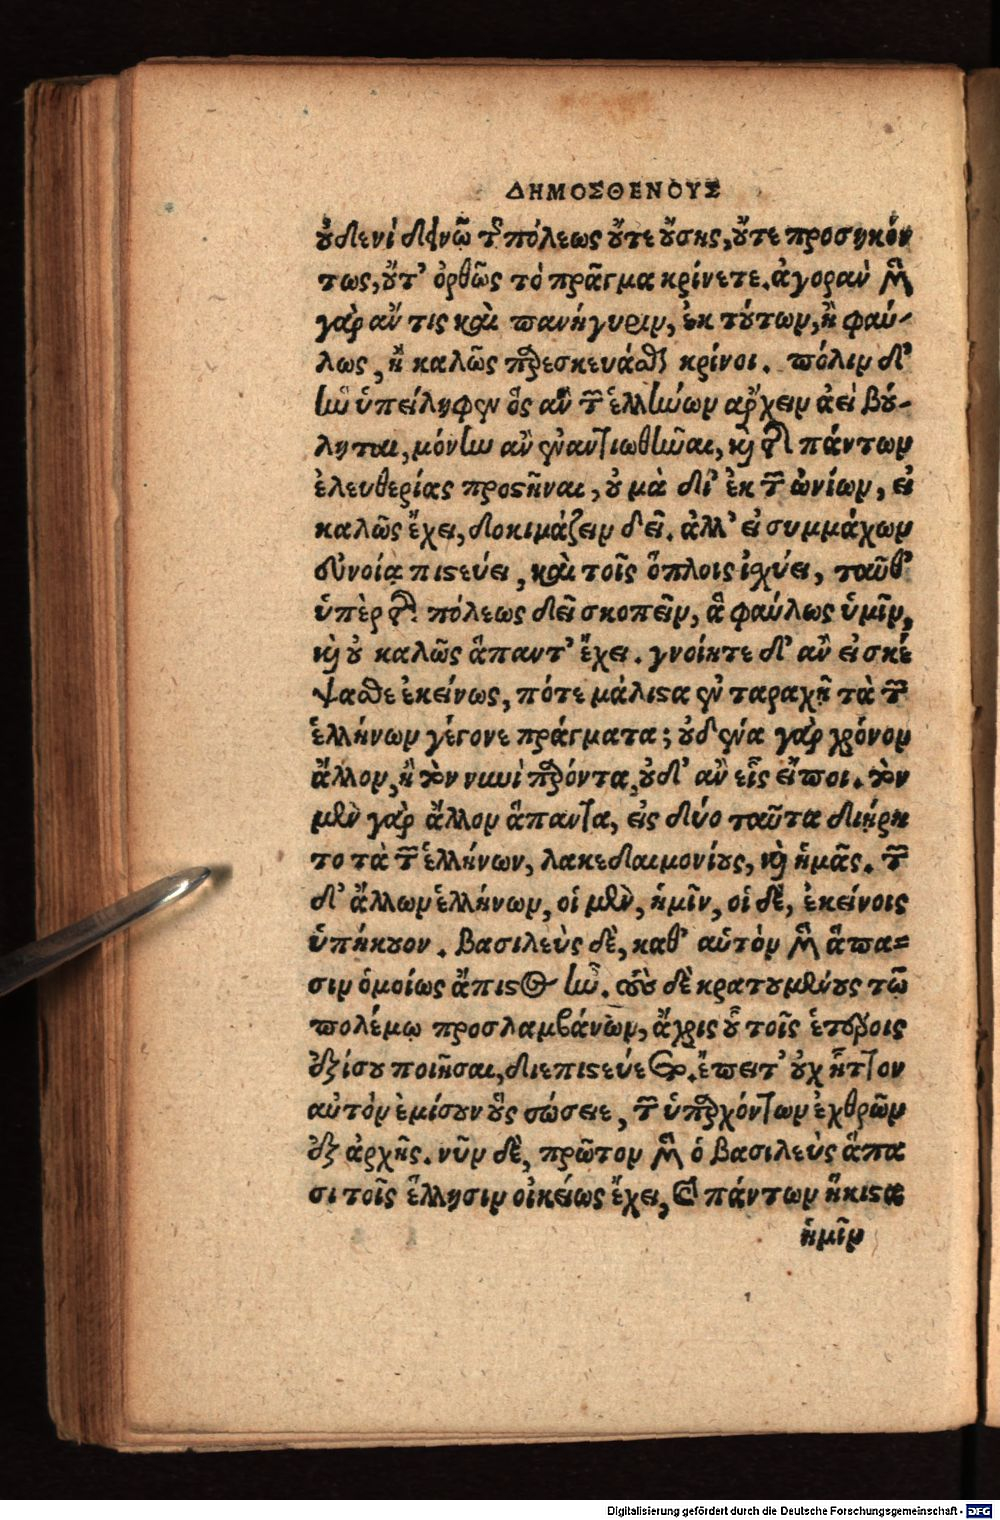 ΔΗΜΟΣΘΕΝΟΥΣ
οὐδενὶ δεινῷ τῆς πόλεως οὔτε οὔσης, οὔτε προσηκόν
τως, οὔτ' ὀρθῶς τὸ πρᾶγμα κρίνετε. ἀγορὰν μὲν
γὰρ ἄν τις καὶ πανήγυριν, ἐκ τούτων, ἢ φαύ-
λως, ἢ καλῶς παρεσκευάσθαι κρίνοι. πόλιν δ'
ἣν ὑπείληφεν ὃς ἂν τῶν ἑλλήνων ἄρχειν ἀεὶ βού-
ληται, μόνην ἂν ἐναντιωθῆναι, καὶ τῆς πάντων
ἐλευθερίας προστῆναι, οὐ μὰ δι' ἐκ τῶν ὠνίων, εἰ
καλῶς ἔχει, δοκιμάζειν δεῖ. ἀλλ' εἰ συμμάχων
εὐνοίᾳ πιστεύει, καὶ τοῖς ὅπλοις ἰσχύει, ταῦθ'
ὑπὲρ τῆς πόλεως δεῖ σκοπεῖν, ἃ φαύλως ὑμῖν,
καὶ οὐ καλῶς ἅπαντ' ἔχει. γνοίητε δ' ἂν εἰ σκέ
ψαισθε ἐκείνως, πότε μάλιστα ἐν ταραχῇ τὰ τῶν
ἑλλήνων γέγονε πράγματα; οὐδένα γὰρ χρόνον
ἄλλον, ἢ τὸν νυνὶ παρόντα, οὐδ' ἂν εἷς εἴποι. τὸν
μὲν γὰρ ἄλλον ἅπαντα, εἰς δύο ταῦτα διῄρη
το τὰ τῶν ἑλλήνων, λακεδαιμονίους, καὶ ἡμᾶς. τῶν
δ' ἄλλων ἑλλήνων, οἱ μὲν, ἡμῖν, οἱ δὲ, ἐκείνοις
ὑπήκουον. βασιλεὺς δὲ, καθ' αὑτὸν μὲν ἅπα=
σιν ὁμοίως ἄπιστος ἦν. τοὺς δὲ κρατουμένους τῷ
πολέμῳ προσλαμβάνων, ἄχρις οὗ τοῖς ἑτέροις
ἐξίσου ποιῆσαι, διεπιστεύετο. ἔπειτ' οὐχ ἧττον
αὐτὸν ἐμίσουν οὓς σώσειε, τῶν ὑπαρχόντων ἐχθρῶν
ἐξ ἀρχῆς. νῦν δὲ, πρῶτον μὲν ὁ βασιλεὺς ἅπα
σι τοῖς ἕλλησιν οἰκείως ἔχει, καὶ πάντων ἥκιστα
ἡμῖν
Digitalisierung gefördert durch die Deutsche Forschungsgemeinschaft - DFG